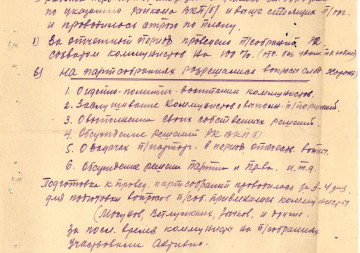 по указанию райкома ВКП(б) и выше стоящих п/ор.
и проводилась по плану
1) За отчетный период проведено п/собраний
коммунистов на 100%
в) На партсобраниях разрешались вопросы
1. О идейно-политич. воспитании коммунистов.
2. Заслушивание коммунистов о выполн. п/поручений
3. О выполнении своих собственных решений.
4. Обсуждение решений РК ВКП(б)
5. О задачах п/парторг. в период отечеств. войны.
6. Обсуждение решений партии и Прав. и т.д.
Подготовка к провед. партсобраний проводилась за 3-4 дня
для подготовки вопросов п/соб. привлекались коммунисты
и другие
за посл. время коммунисты на п/собраниях
участвовали активно.